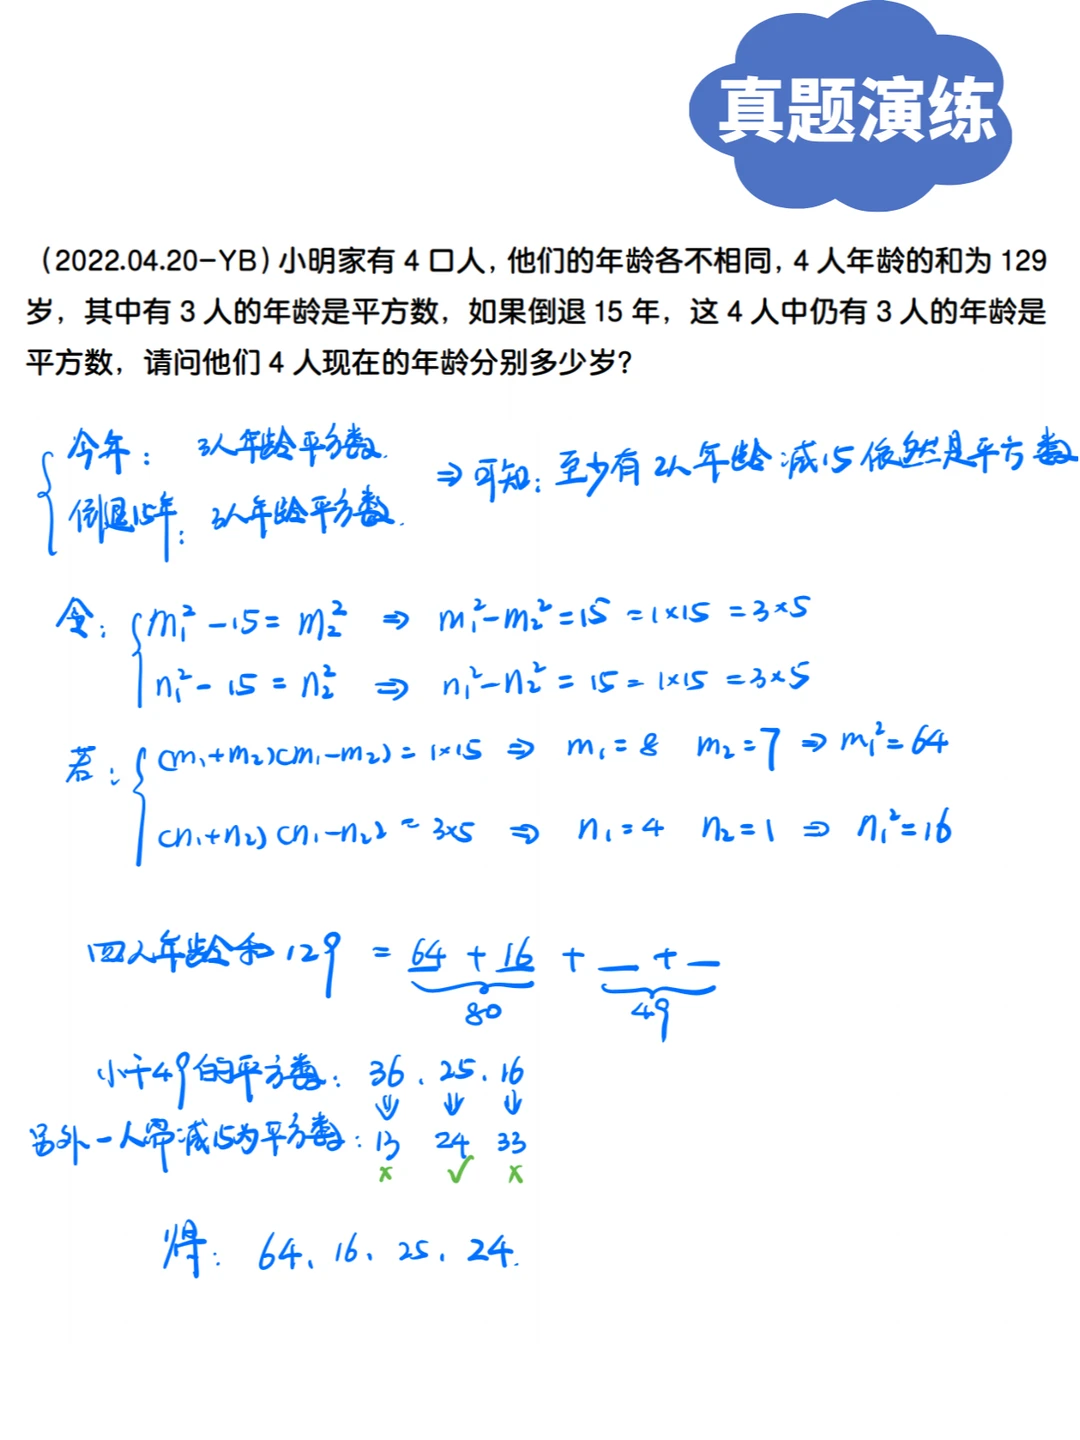 真题演练
（2022.04.20-YB）小明家有 4 口人，他们的年龄各不相同，4 人年龄的和为 129
岁，其中有 3 人的年龄是平方数，如果倒退 15 年，这 4 人中仍有 3 人的年龄是
平方数，请问他们 4 人现在的年龄分别多少岁？
今年： 3人年龄平方数. ⇒ 可知：至少有2人年龄减15依然是平方数
倒退15年： 3人年龄平方数.
令： m₁² - 15 = m₂² ⇒ m₁² - m₂² = 15 = 1×15 = 3×5
n₁² - 15 = n₂² ⇒ n₁² - n₂² = 15 = 1×15 = 3×5
若： (m₁+m₂)(m₁-m₂) = 1×15 ⇒ m₁ = 8 m₂ = 7 ⇒ m₁² = 64
(n₁+n₂)(n₁-n₂) = 3×5 ⇒ n₁ = 4 n₂ = 1 ⇒ n₁² = 16
四人年龄和 129 = 64 + 16 + __ + __
80 49
小于49的平方数： 36、25、16
⇓ ⇓ ⇓
另外一人需减15为平方数： 13 24 33
× ✓ ×
得： 64、16、25、24.